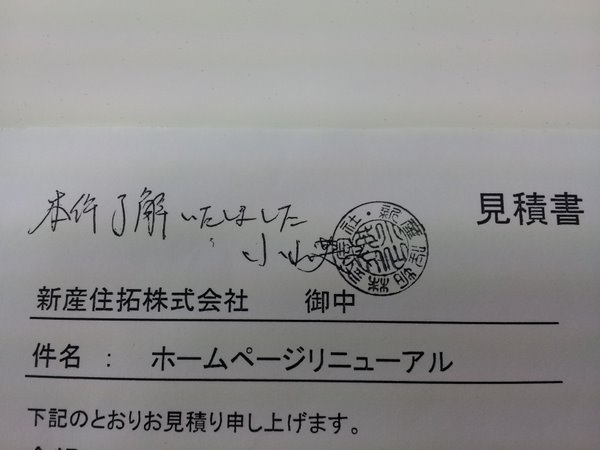 見積書
本件了解いたしました
小山
新産住拓株式会社 御中
件名 : ホームページリニューアル
下記のとおりお見積り申し上げます。